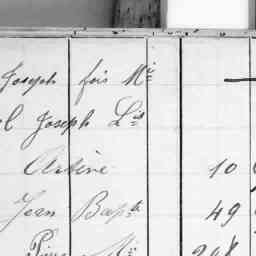 Joseph fois Mi
l Joseph Lis
Arsène 10
Jean Bapte 49
Pierre Mi 208